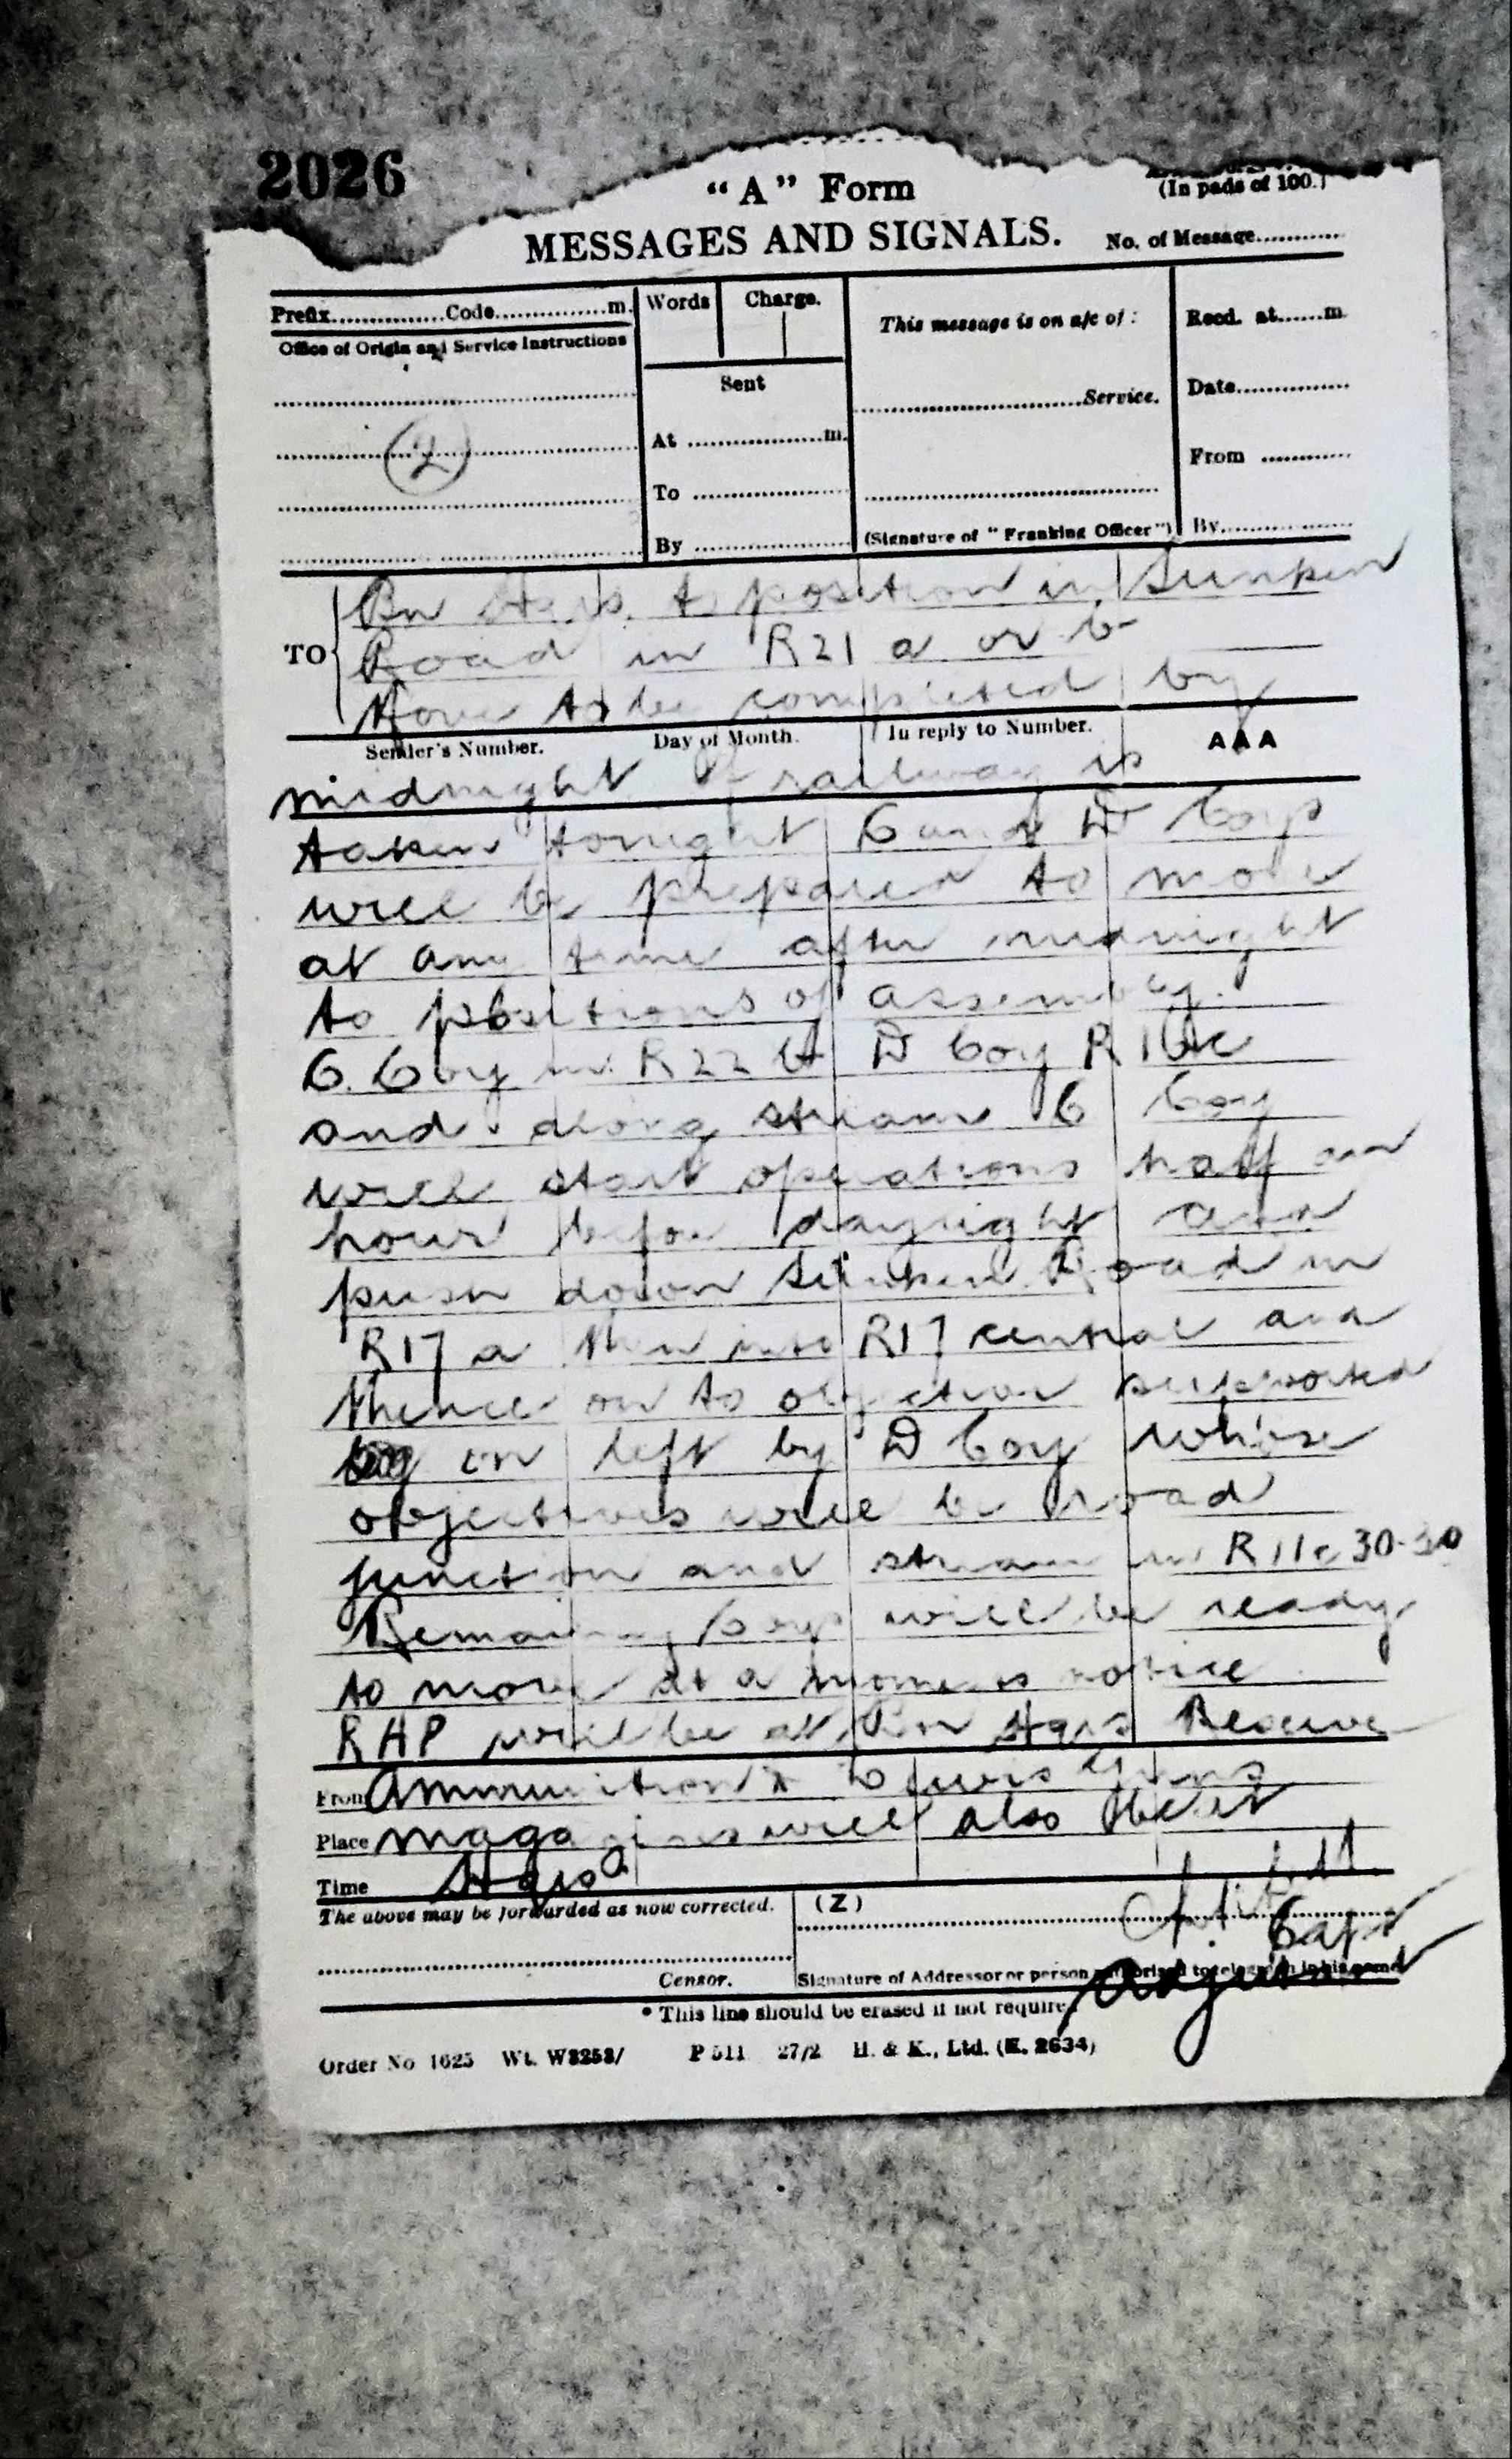 2026
"A" Form
(In pads of 100.)
MESSAGES AND SIGNALS.
No. of Message............
Prefix...............Code...............m.
Words
Charge.
This message is on a/c of :
Recd. at......m.
Office of Origin and Service Instructions
Sent
Date...............
...............Service.
(2)
At ...............m.
From ............
To ...............
By ...............
(Signature of "Franking Officer")
By...............
TO
Bn Hqrs. to position in Sunken
Road in R21 a or b
Move to be completed by
Sender's Number.
Day of Month.
In reply to Number.
AAA
midnight If railway is
taken tonight C and D Coys
will be prepared to move
at any time after midnight
to positions of assembly.
C. Coy in R22 D Coy R
and along stream C Coy
will start operations half an
hour before daylight and
push down Sunken Road in
R17 a then into R17 central and
thence on to objective supported
on left by D Coy whose
objectives will be road
junction and stream in R11c 30-30
Remaining Coys will be ready
to move at a moments notice
RAP will be at Bn Hqrs Reserve
From
ammunition & Lewis Guns
Place
magazines will also be at
Time
Hqrs
The above may be forwarded as now corrected.
(Z)
Capt
Censor.
Signature of Addressor or person authorised to telegraph in his name
Adjutant
* This line should be erased if not required.
Order No 1625 Wt. W3253/ P 511 27/2 H. & K., Ltd. (E. 2634)